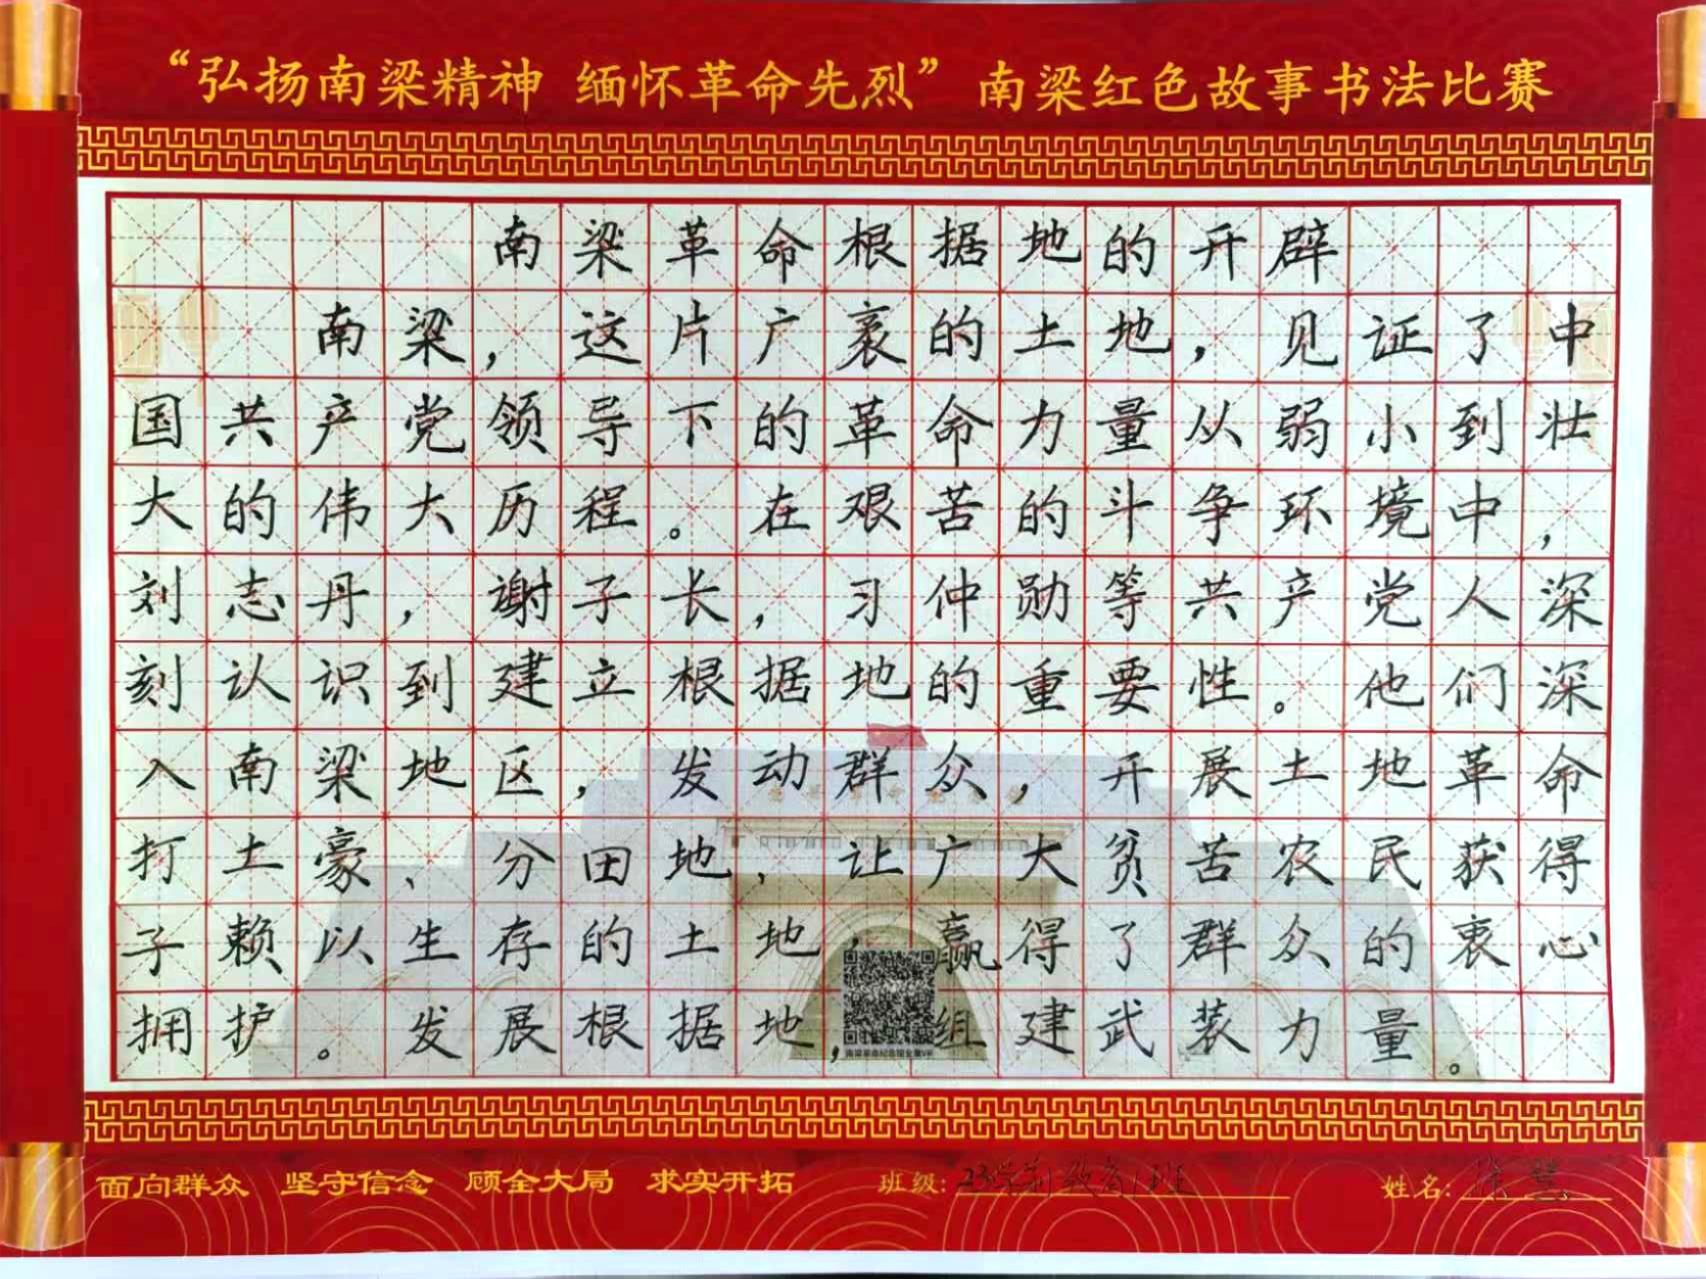 “弘扬南梁精神 缅怀革命先烈”南梁红色故事书法比赛
南梁革命根据地的开辟
南梁，这片广袤的土地，见证了中
国共产党领导下的革命力量从弱小到壮
大的伟大历程。在艰苦的斗争环境中，
刘志丹，谢子长，习仲勋等共产党人深
刻认识到建立根据地的重要性。他们深
入南梁地区，发动群众，开展土地革命
打土豪、分田地，让广大贫苦农民获得
子赖以生存的土地，赢得了群众的衷心
拥护。发展根据地，组建武装力量。
南梁革命纪念馆全景VR
面向群众 坚守信念 顾全大局 求实开拓 班级:23学前教育1班 姓名: